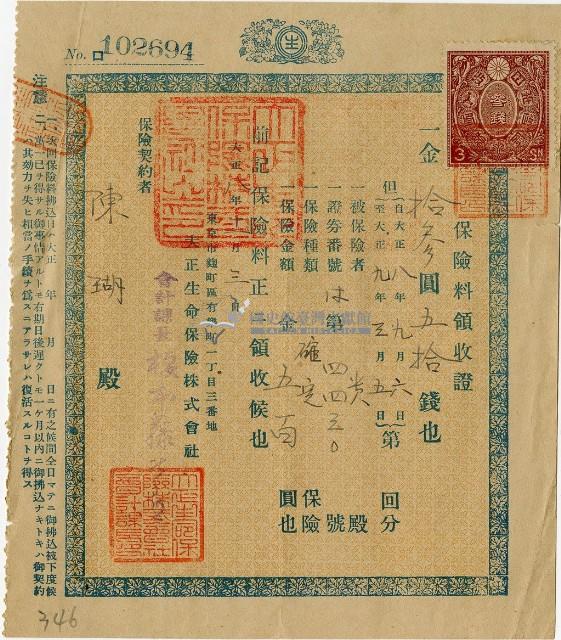 No. ロ102694
生
3 SN
保險料領收證
一金拾參圓五拾錢也
但 自大正八年九月六日 至大正九年三月五日 第 回分
一被保險者 殿
一證券番號 は第四四三〇號
一保險種類 確定 保險
一保險金額 金五百圓也
前記保險料正ニ領收候也
大正八年十一月三日
東京市麴町區有樂町一丁目三番地
大正生命保險株式會社
會計課長
保險契約者
陳瑚殿
注意 一、次回保險料拂込日ハ大正 年 月 日ニ有之候間仝日マテニ御拂込被下度候
二、萬一已ヲ得サル御事情アルトモ右期日後遲クトモ一ケ月以内ニ御拂込ナキトキハ御契約
ハ其効力ヲ失ヒ相當ノ手續ヲ爲スニアラサレハ復活スルコトヲ得ス
國史館臺灣文獻館
TAIWAN HISTORICA
346